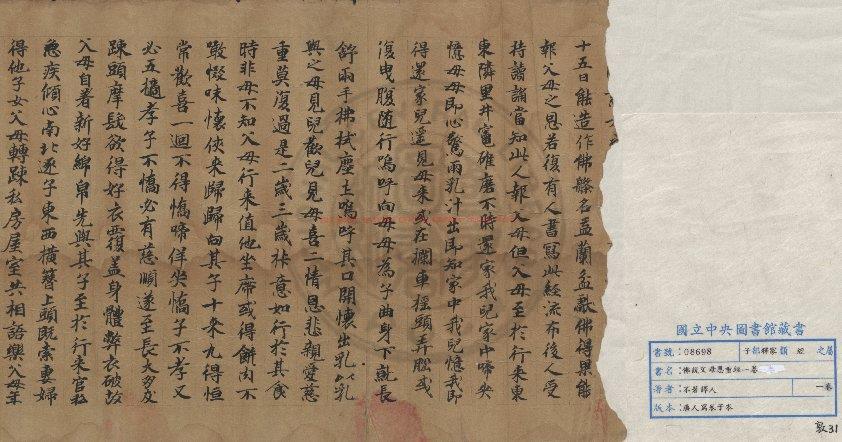 十五日能造作佛槃名盂蘭盆獻佛得果能
報父母之恩若復有人書寫此經流布後人受
持讀誦當知此人報父母但父母至於行來東
東隣里井竈碓磨不時還家我兒家中啼哭
憶母母即心驚兩乳汁出即知家中我兒憶我即
得還家兒遥見母來或在欄車揺頭弄腦或
復曳腹随行嗚呼向母母為子曲身下就長
舒兩手拂拭塵土嗚呼其口開懷出乳以乳
與之母見兒歡兒見母喜二情恩悲親愛慈
重莫復過是二歲三歲意如行於其食
時非母不知父母行來值他坐席或得餅肉不
噉輟味懷俠來歸歸向其子十來九得恒
常歡喜一迴不得憍啼佯哭憍子不孝又
必五擿孝子不憍必有慈順遂至長大
踈頭摩髮欲得好衣覆盖身體弊衣破故
父母自着新好綿帛先與其子至於行來官私
急疾傾心南北逐子東西横簪上頭既索妻婦
得他子女父母轉踈私房屋室共相語樂父母年
國立中央圖書館藏書
書號：08698 子部釋家類 經 之屬
書名：佛說父母恩重經一卷
著者：不著譯人 一卷
版本：唐人寫卷子本
敦31